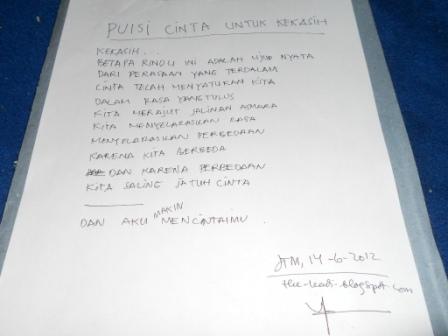 PUISI CINTA UNTUK KEKASIH
KEKASIH...
BETAPA RINDU INI ADALAH WUJUD NYATA
DARI PERASAAN YANG TERDALAM
CINTA TELAH MENYATUKAN KITA
DALAM RASA YANG TULUS
KITA MERAJUT JALINAN ASMARA
KITA MENYELARASKAN RASA
MENYELARASKAN PERBEDAAN
KARENA KITA BERBEDA
DAN KARENA PERBEDAAN
KITA SALING JATUH CINTA
DAN AKU MAKIN MENCINTAIMU.
JTM, 14-6-2012
blogspot.com